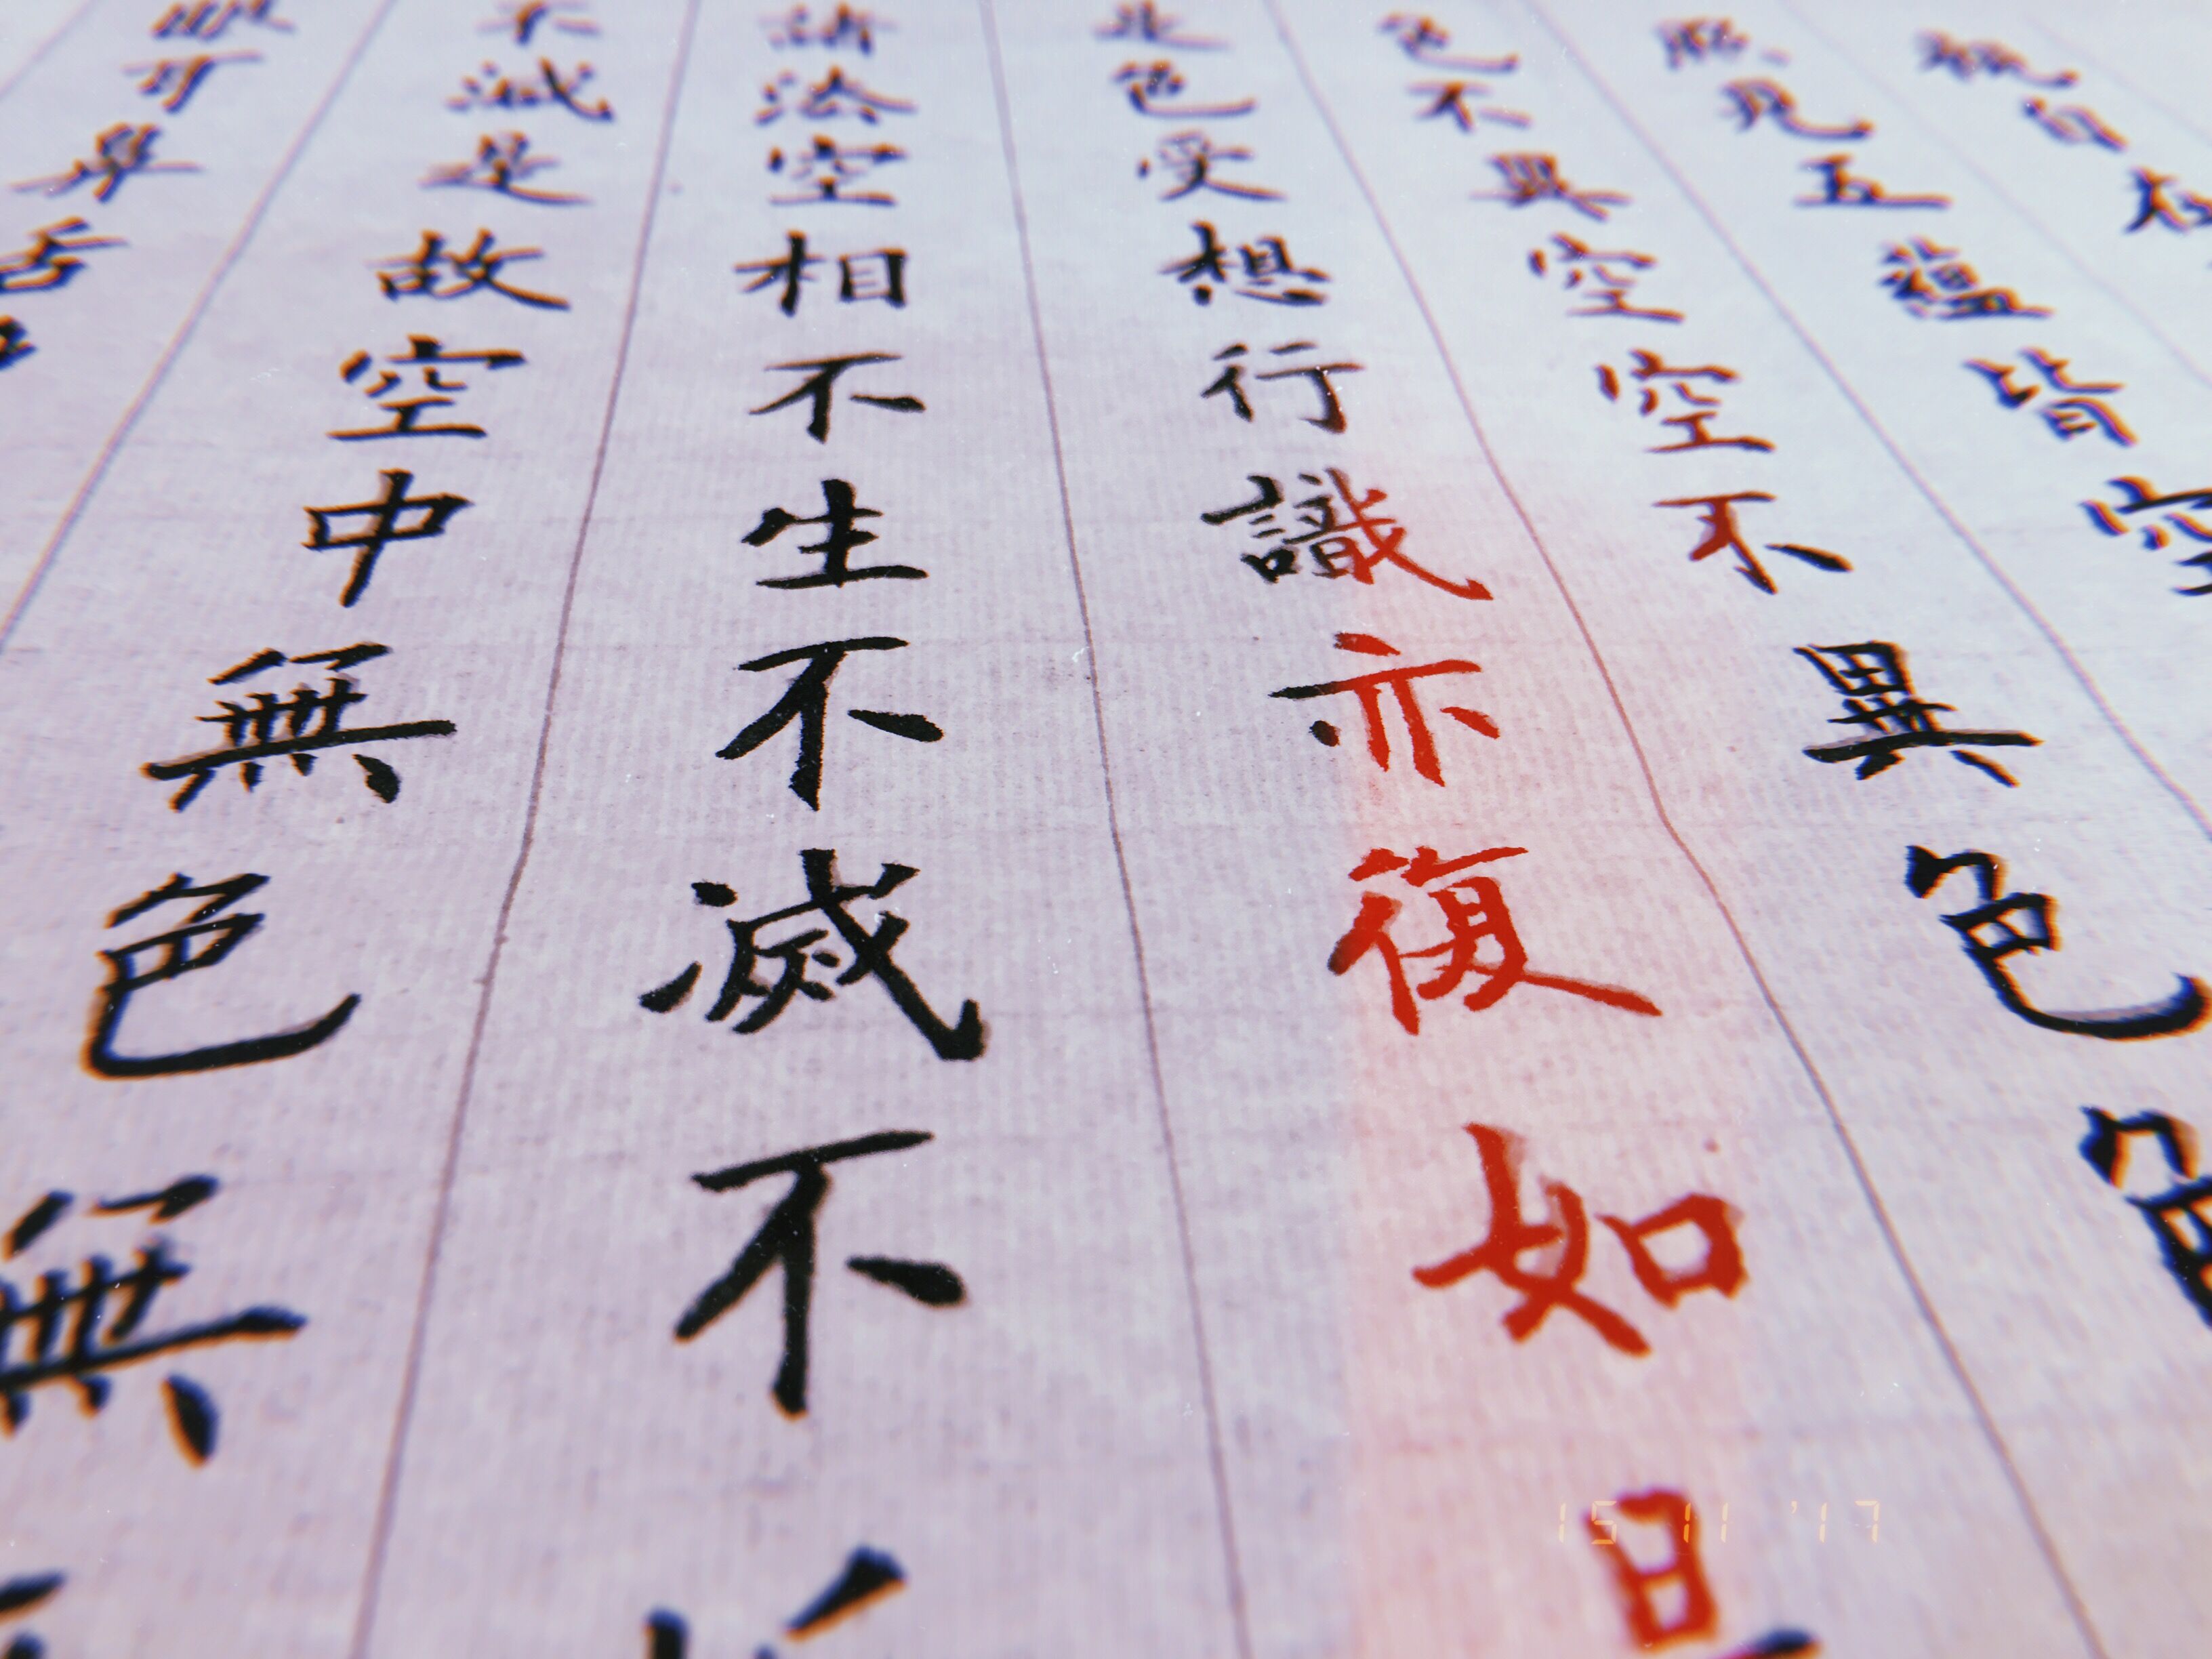 觀自在
照見五蘊皆空
色不異空空不異色色
是色受想行識亦復如是
諸法空相不生不滅不
不減是故空中無色無
耳鼻舌
15 11 '17